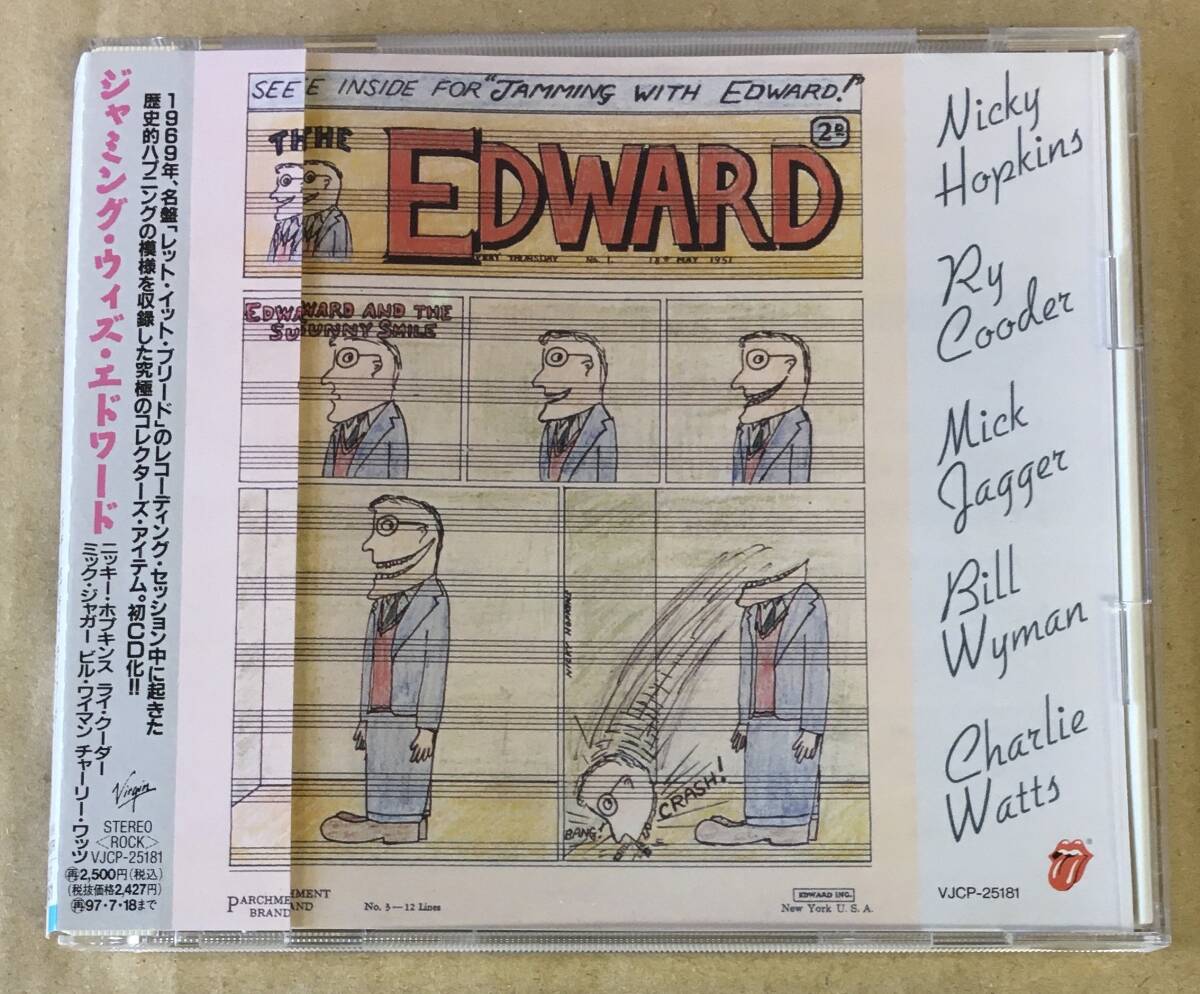 ジャミング・ウィズ・エドワード
1969年、名盤「レット・イット・ブリード」のレコーディング・セッション中に起きた
歴史的ハプニングの模様を収録した究極のコレクターズ・アイテム。初CD化!!
ニッキー・ホプキンス ライ・クーダー
ミック・ジャガー ビル・ワイマン チャーリー・ワッツ
Virgin
STEREO
<ROCK>
VJCP-25181
再2,500円(税込)
(税抜価格2,427円)
再97・7・18まで
SEE INSIDE FOR "JAMMING WITH EDWARD!"
THE EDWARD
2D
EVERY THURSDAY No. 1. 18TH MAY 1951
EDWARD AND THE
SUNNY SMILE
NICKY HOPKINS
BANG!
CRASH!
PARCHMENT
BRAND
No. 3—12 Lines
EDWARD INC.
New York U. S. A.
Nicky
Hopkins
Ry
Cooder
Mick
Jagger
Bill
Wyman
Charlie
Watts
VJCP-25181